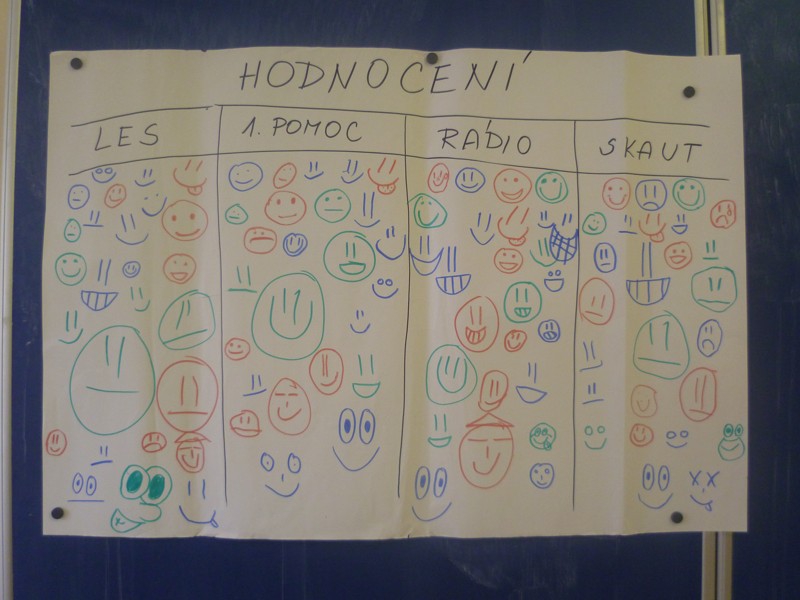 HODNOCENÍ
LES 1. POMOC RÁDIO SKAUT